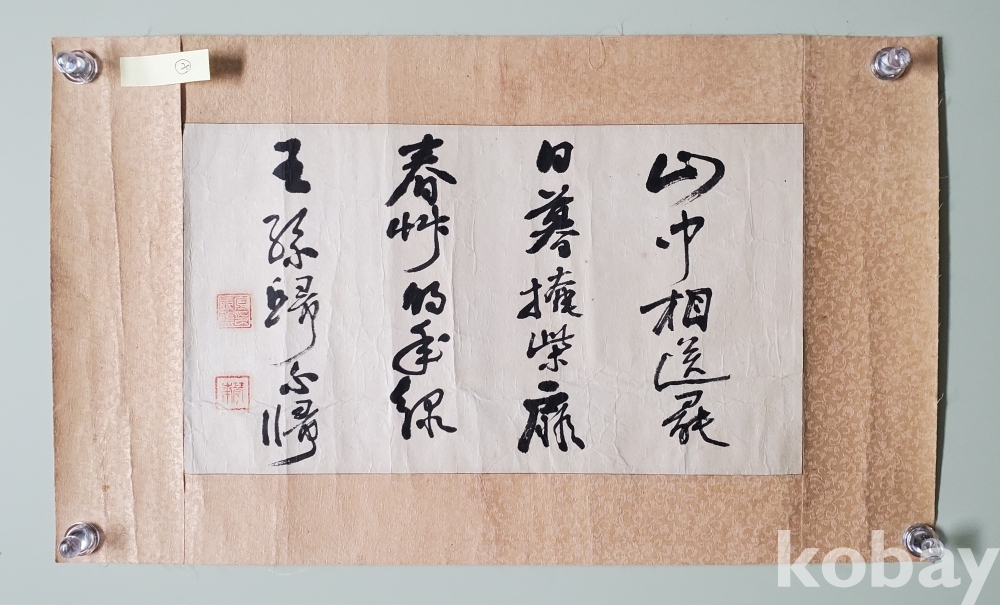 山中相送罷
日暮掩柴扉
春艸明年綠
王孫歸不歸
kobay